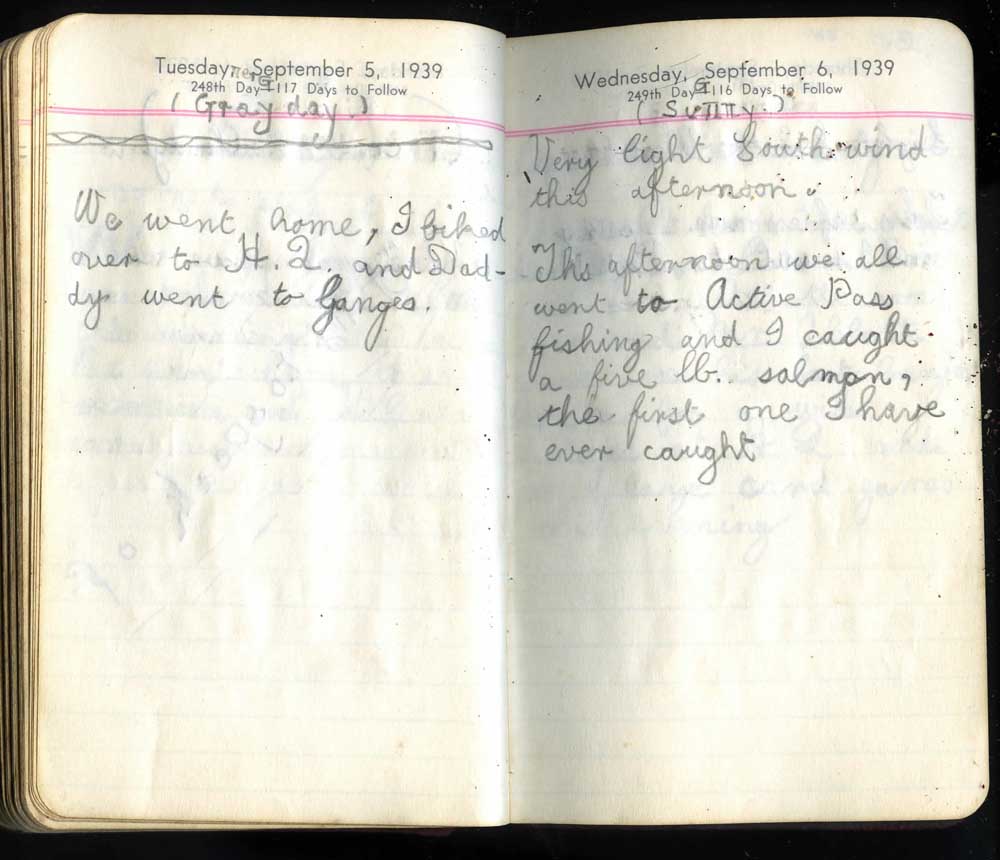 Tuesday, September 5, 1939
248th Day 117 Days to Follow
(Gray day.)
We went home, I biked
over to H. Q. and Dad-
dy went to Ganges.
Wednesday, September 6, 1939
249th Day 116 Days to Follow
(Sunny.)
Very light South wind
this afternoon.
This afternoon we all
went to Active Pass
fishing and I caught
a five lb. salmon,
the first one I have
ever caught